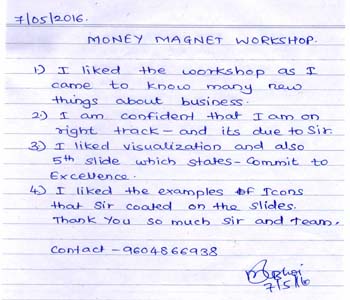 7/05/2016.
MONEY MAGNET WORKSHOP.
1) I liked the workshop as I
came to know many new
things about business.
2) I am confident that I am on
right track - and its due to Sir.
3) I liked visualization and also
5th slide which states - Commit to
Excellence.
4) I liked the examples of Icons
that Sir coated on the slides.
Thank You so much Sir and Team.
Contact - 9604866938
7/5/16